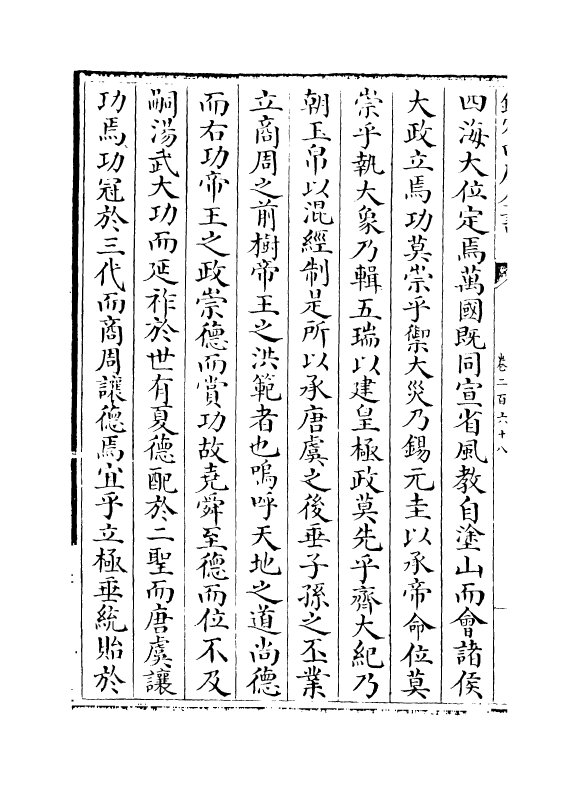 欽定四庫全書
卷二百六十八
四海大位定焉萬國既同宣省風教自塗山而會諸侯
大政立焉功莫崇乎禦大災乃錫元圭以承帝命位莫
崇乎執大象乃輯五瑞以建皇極政莫先乎齊大紀乃
朝玉帛以混經制是所以承唐虞之後垂子孫之丕業
立商周之前樹帝王之洪範者也嗚呼天地之道尚德
而右功帝王之政崇德而賞功故堯舜至德而位不及
嗣湯武大功而延祚於世有夏德配於二聖而唐虞讓
功焉功冠於三代而商周讓德焉宜乎立極垂統貽於